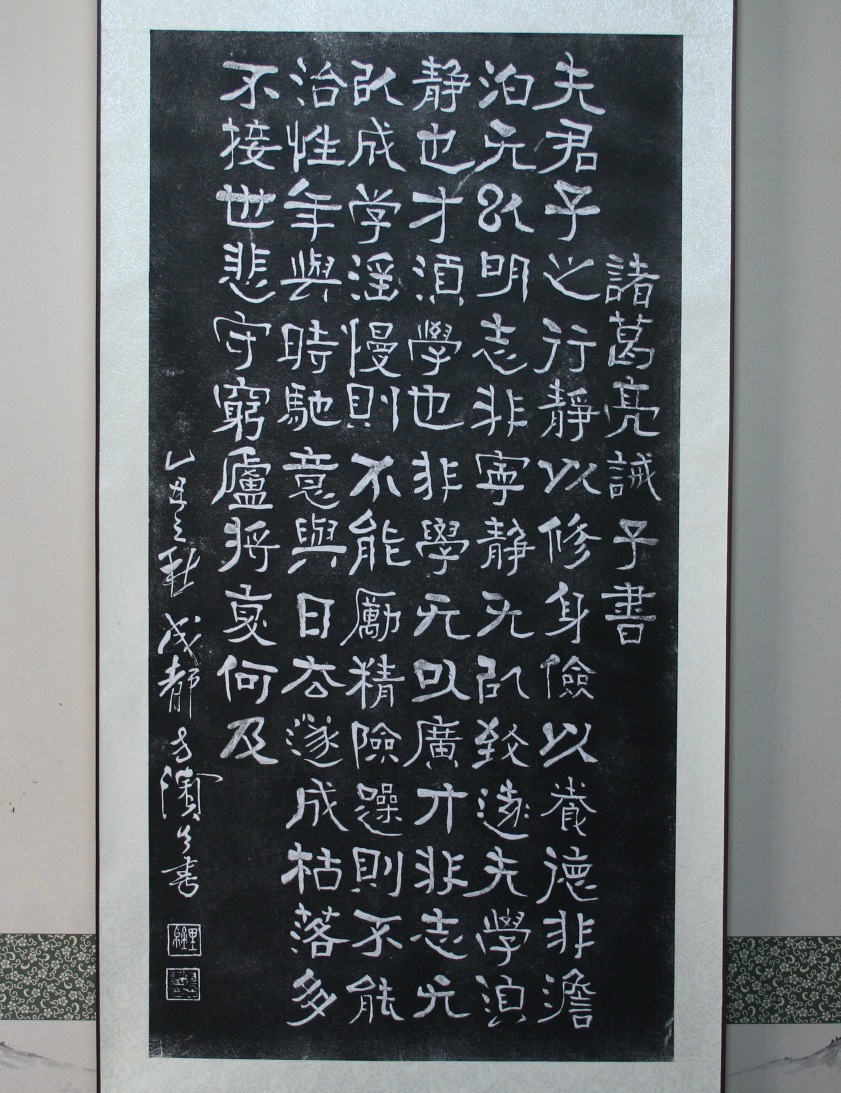 諸葛亮誡子書
夫君子之行靜以修身儉以養德非澹
泊无以明志非寧静无以致遠夫學須
静也才須學也非學无以廣才非志无
以成学滛慢則不能勵精險躁則不能
治性年與時馳意與日去遂成枯落多
不接世悲守窮廬将复何及
乙丑之秋成都方濱生書